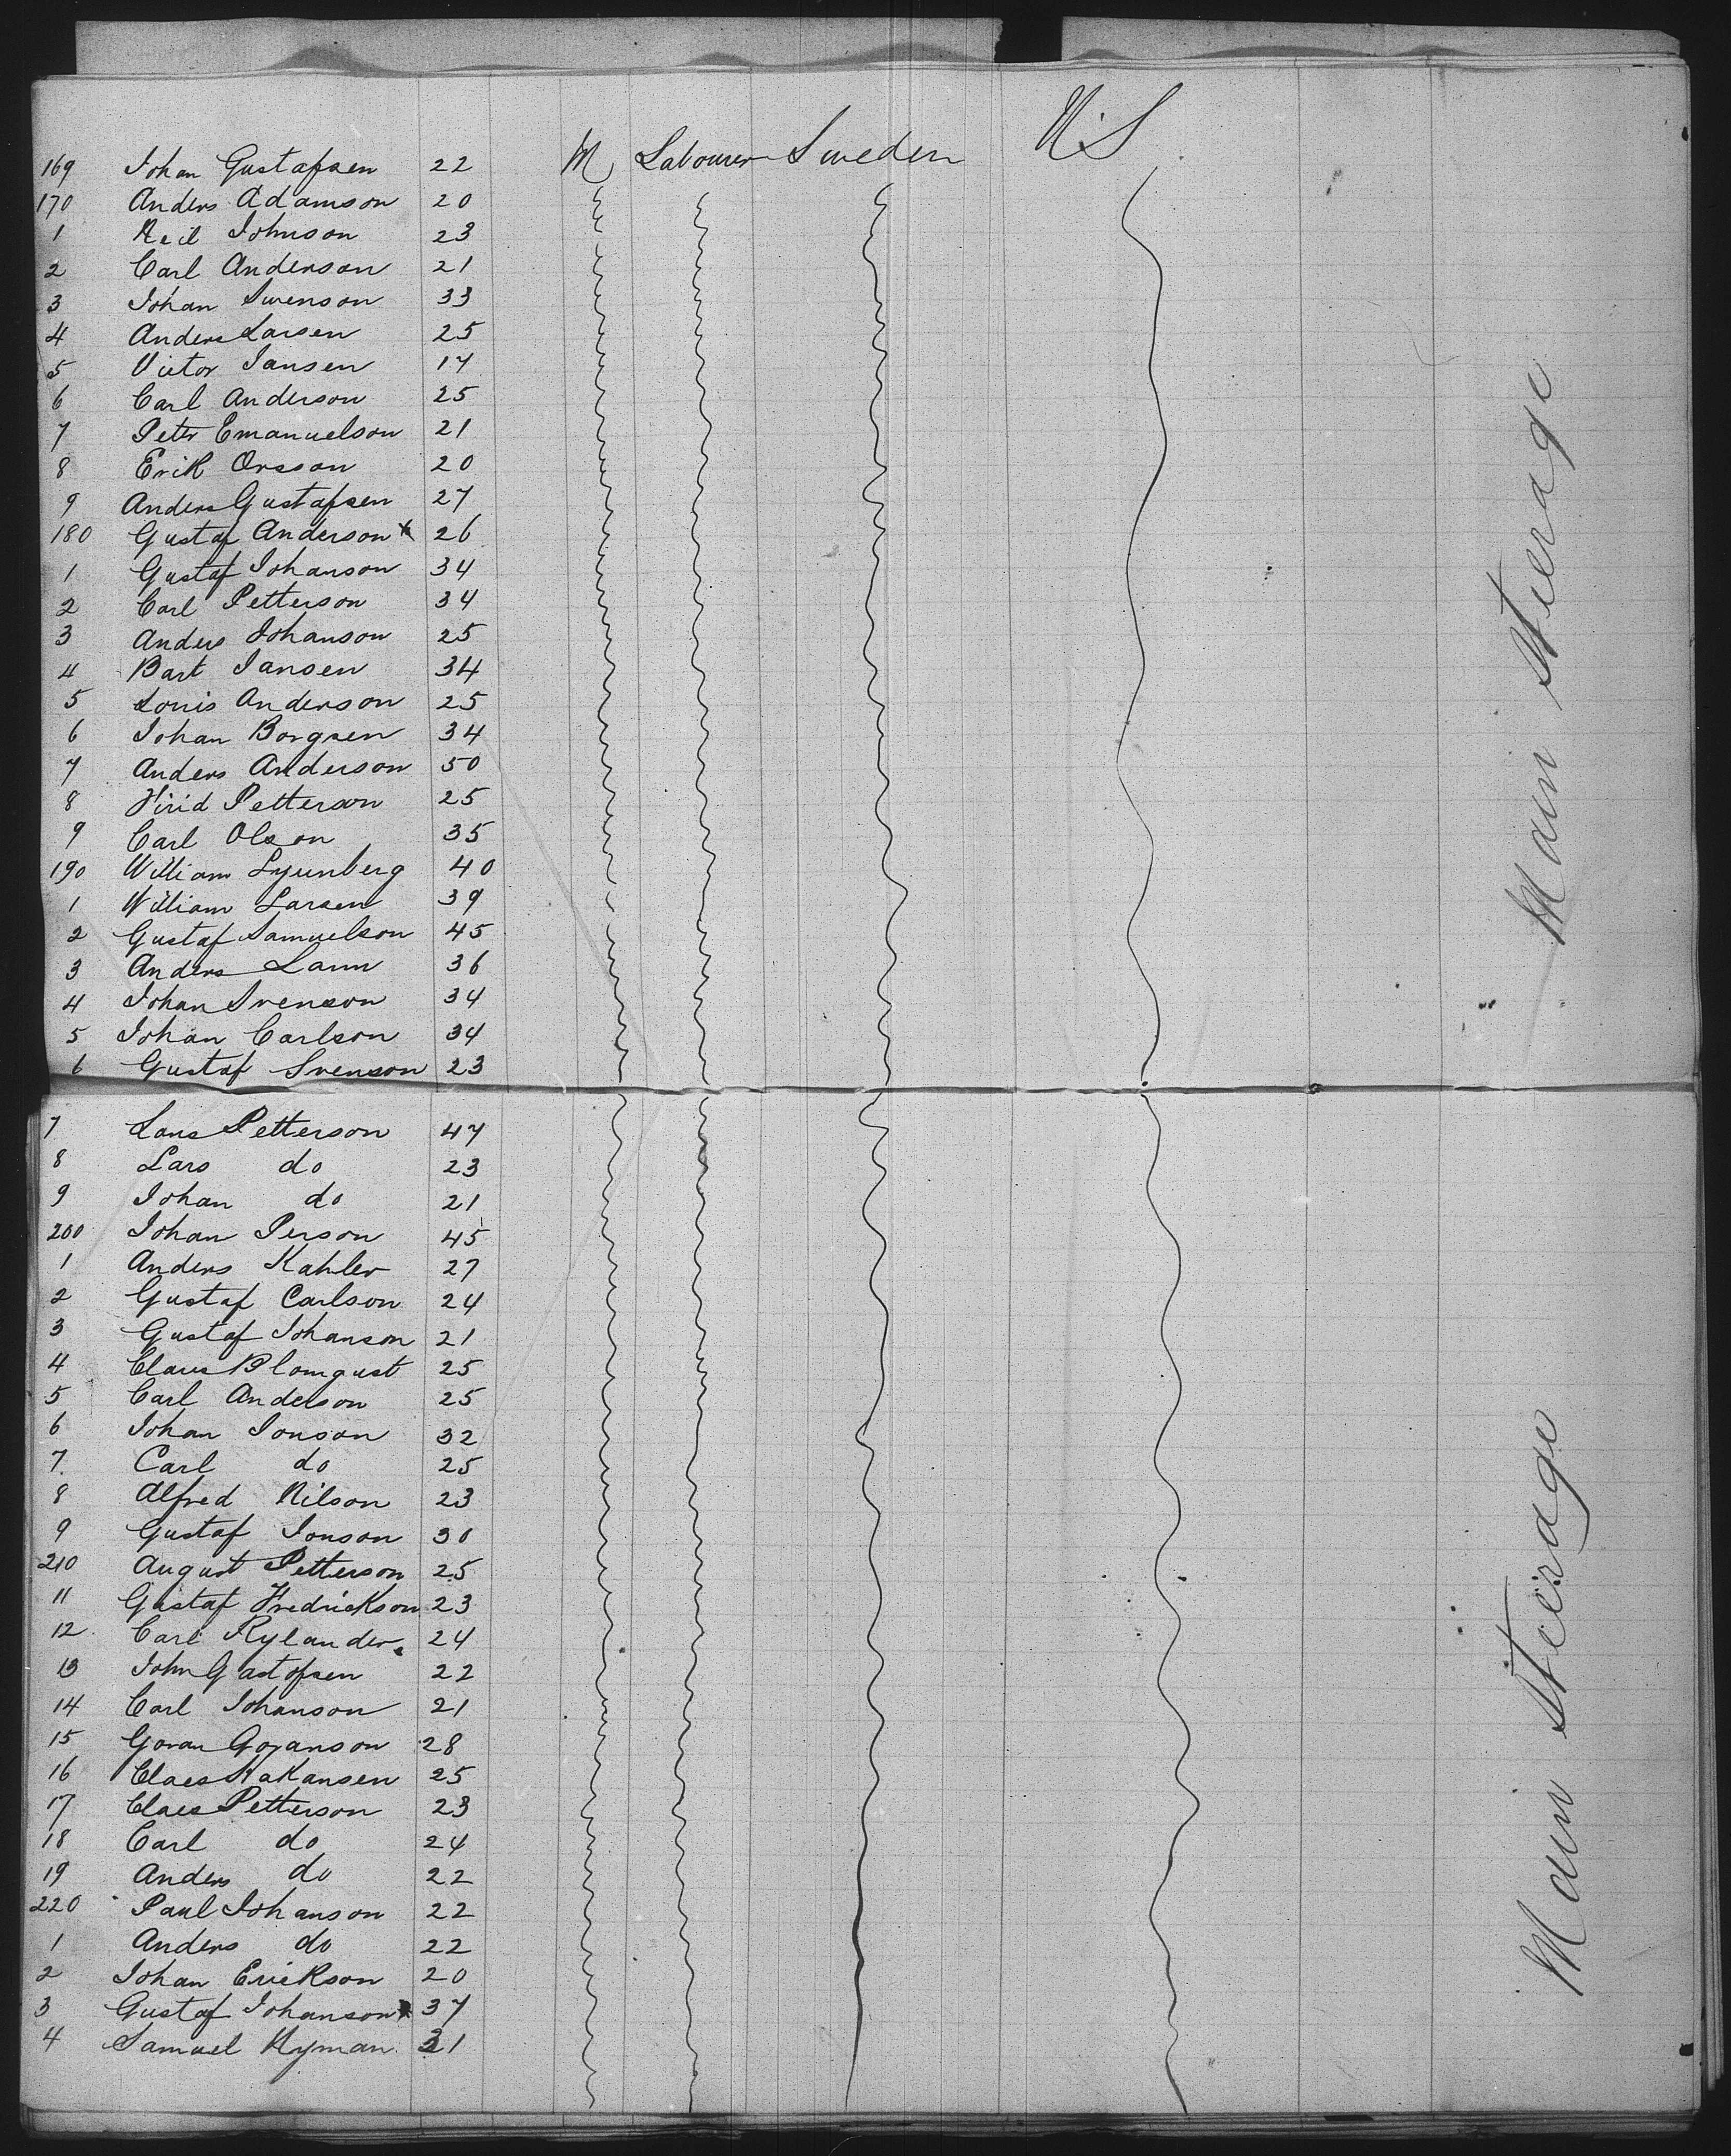 169 Johan Gustafsen 22 M Labourer Sweden U.S.
170 Anders Adamson 20
1 Neil Johnson 23
2 Carl Anderson 21
3 Johan Swenson 33
4 Anders Larsen 25
5 Victor Jansen 17
6 Carl Anderson 25
7 Peter Emanuelson 21
8 Erik Orsson 20
9 Anders Gustafsen 27
180 Gustaf Anderson x 26
1 Gustaf Johanson 34
2 Carl Petterson 34
3 Anders Johanson 25
4 Bart Jansen 34
5 Louis Anderson 25
6 Johan Borgsen 34
7 Anders Anderson 50
8 Petterson 25
9 Carl Olson 35
190 William Lyunberg 40
1 William Larsen 39
2 Gustaf Samuelson 45
3 Anders Lann 36
4 Johan Svenson 34
5 Johan Carlson 34
6 Gustaf Svenson 23
7 Lans Petterson 47
8 Lars do 23
9 Johan do 21
200 Johan Person 45
1 Anders Kahler 27
2 Gustaf Carlson 24
3 Gustaf Johanson 21
4 Claus Blomgust 25
5 Carl Andelson 25
6 Johan Jonson 32
7. Carl do 25
8 Alfred Nilson 23
9 Gustaf Jonson 30
210 August Petterson 25
11 Gustaf Fredrickson 23
12 Carl Rylander 24
13 John Gastofsen 22
14 Carl Johanson 21
15 Goran Goranson 28
16 Claes Hakansen 25
17 Claes Petterson 23
18 Carl do 24
19 Anders do 22
220 Paul Johanson 22
1 Anders do 22
2 Johan Erickson 20
3 Gustaf Johanson x 37
4 Samuel Nyman 21
Main steerage
Main steerage